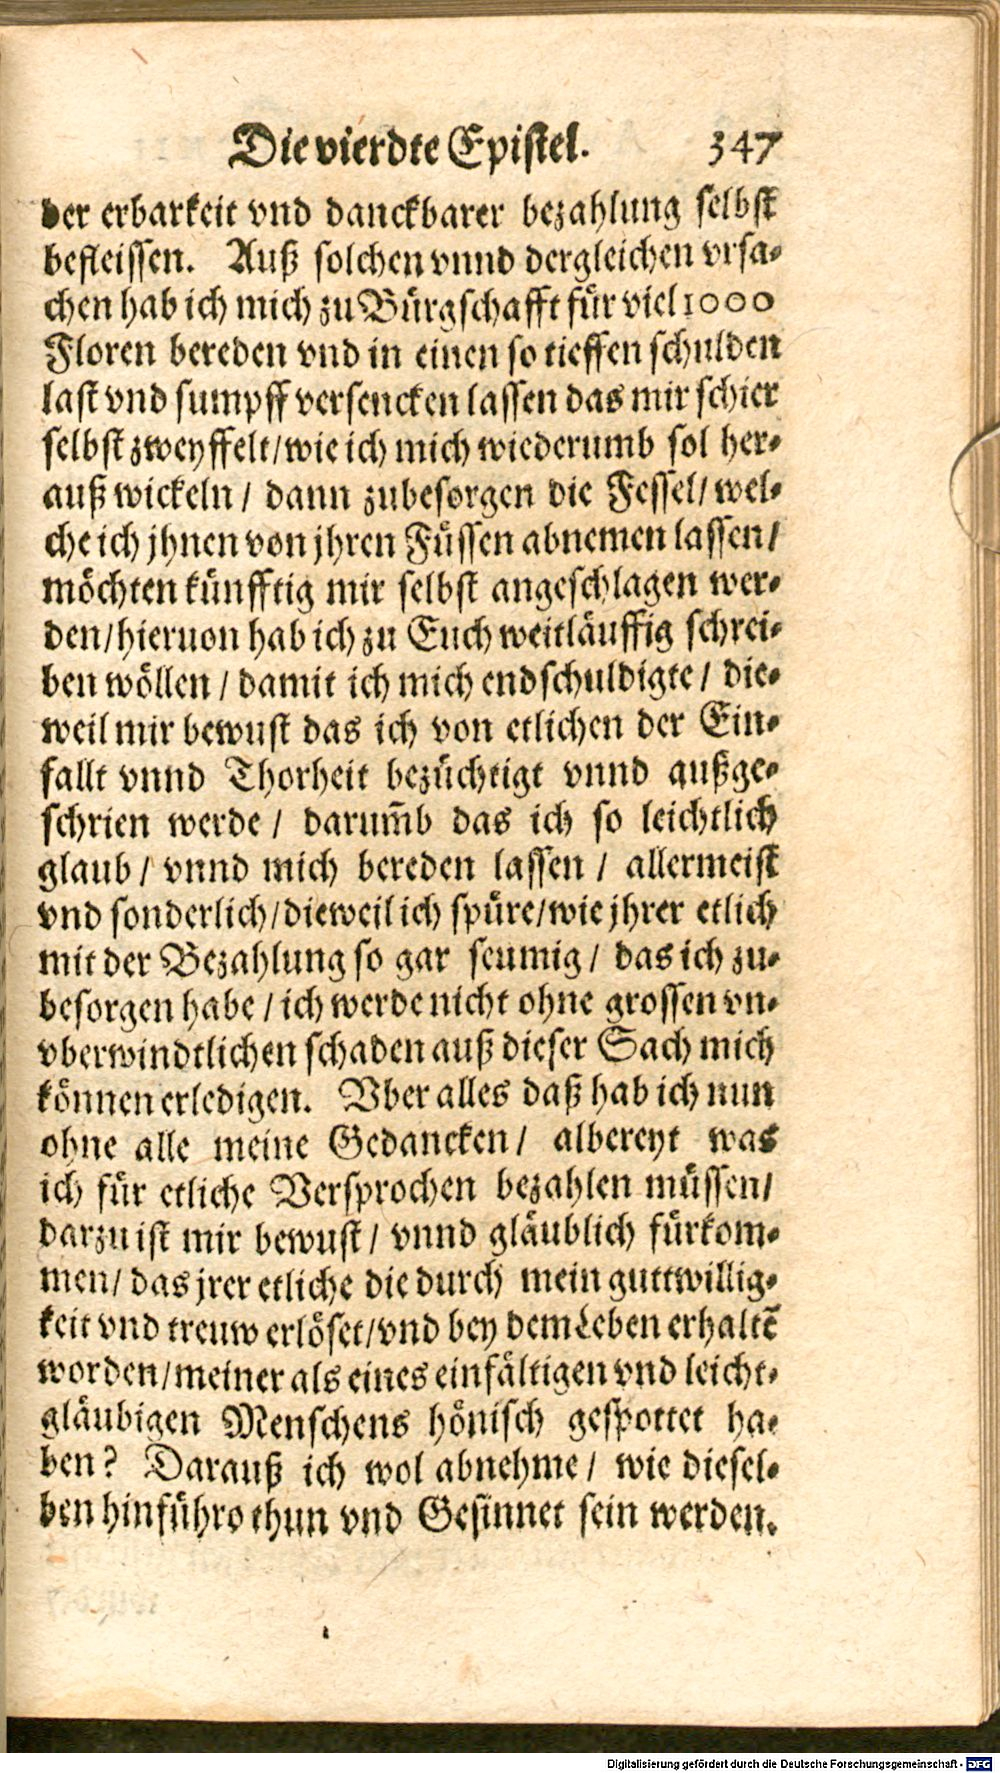 Die vierdte Epistel. 347
der erbarkeit vnd danckbarer bezahlung selbst
befleissen. Auß solchen vnnd dergleichen vrsa-
chen hab ich mich zu Bürgschafft für viel 1000
Floren bereden vnd in einen so tieffen schulden
last vnd sumpff versencken lassen das mir schier
selbst zweyffelt/wie ich mich wiederumb sol her-
auß wickeln/ dann zubesorgen die Fessel/ wel-
che ich jhnen von jhren Füssen abnemen lassen/
möchten künfftig mir selbst angeschlagen wer-
den/hieruon hab ich zu Euch weitläuffig schrei-
ben wöllen/ damit ich mich endschuldigte/ die-
weil mir bewust das ich von etlichen der Ein-
fallt vnnd Thorheit bezüchtigt vnnd außge-
schrien werde/ darum̃b das ich so leichtlich
glaub/ vnnd mich bereden lassen/ allermeist
vnd sonderlich/dieweil ich spüre/wie jhrer etlich
mit der Bezahlung so gar seumig/ das ich zu-
besorgen habe/ ich werde nicht ohne grossen vn-
vberwindtlichen schaden auß dieser Sach mich
können erledigen. Vber alles daß hab ich nun
ohne alle meine Gedancken/ albereyt was
ich für etliche Versprochen bezahlen müssen/
darzu ist mir bewust/ vnnd gläublich fürkom-
men/ das jrer etliche die durch mein guttwillig-
keit vnd treuw erlöset/vnd bey dem Leben erhaltẽ
worden/meiner als eines einfältigen vnd leicht-
gläubigen Menschens hönisch gespottet ha-
ben? Darauß ich wol abnehme/ wie diesel-
ben hinführo thun vnd Gesinnet sein werden.
Digitalisierung gefördert durch die Deutsche Forschungsgemeinschaft - DFG